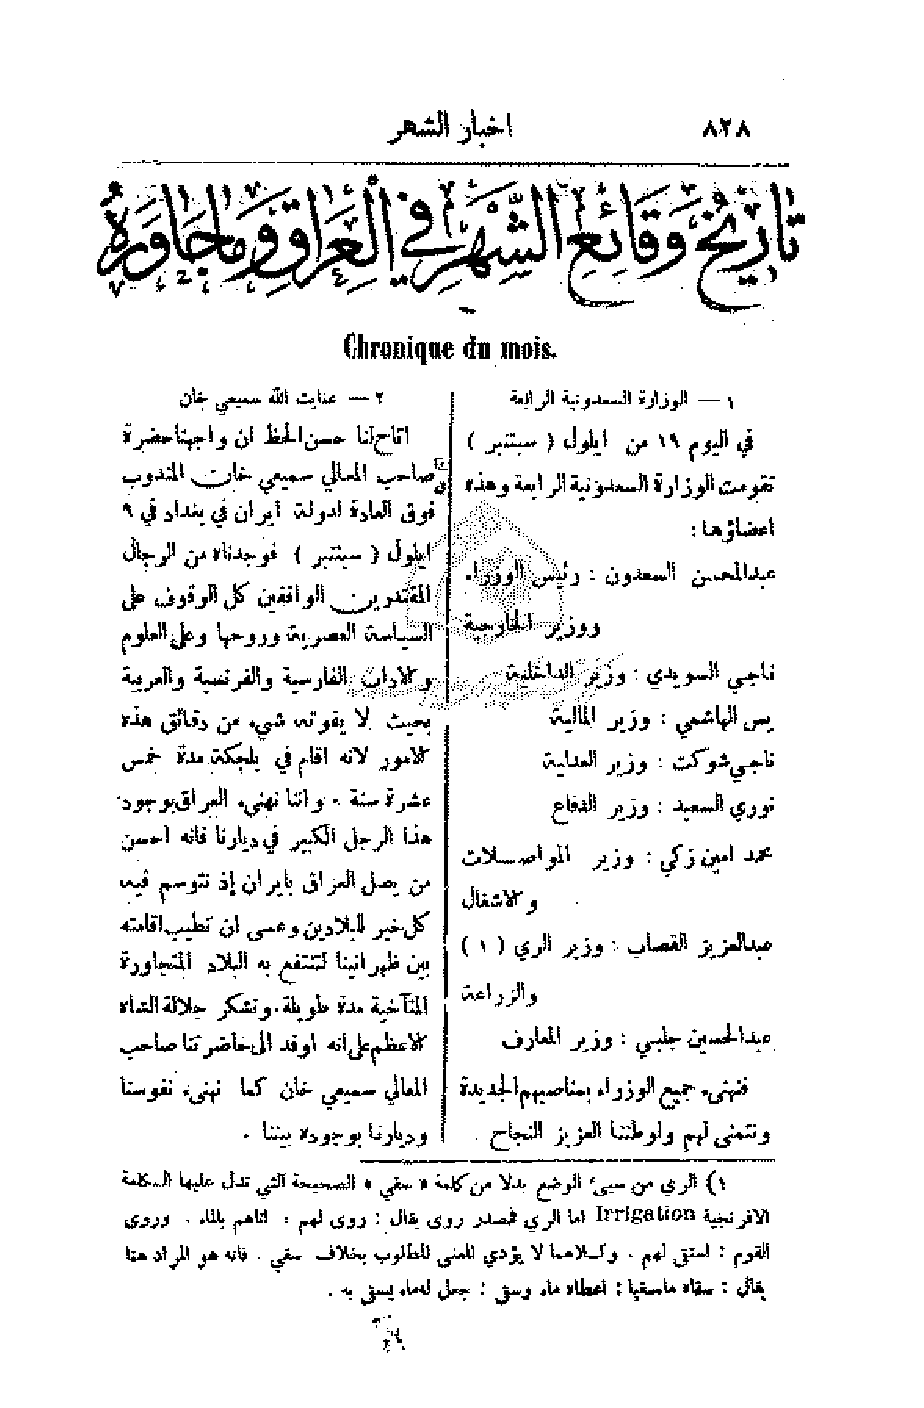 ٨٢٨
اخبار الشهر
تاريخ وقائع الشهر في العراق وما جاوره
Chronique du mois.
١ — الوزارة السعدونية الرابعة
في اليوم ١٩ من ايلول ( سبتنبر )
تقومت الوزارة السعدونية الرابعة وهذه
اعضاؤها :
عبدالمحسن السعدون : رئيس الوزراء
ووزير الخارجية
ناجي السويدي : وزير الداخلية
يس الهاشمي : وزير المالية
ناجي شوكت : وزير العدلية
نوري السعيد : وزير الدفاع
محمد امين زكي : وزير المواصلات
والاشغال
عبدالعزيز القصاب : وزير الري ( ١ )
والزراعة
عبدالحسين جلبي : وزير المعارف
فنهنيء جميع الوزراء بمناصبهم الجديدة
ونتمنى لهم ولوطننا العزيز النجاح .
٢ — عنايت الله سميعي خان
اتاح لنا حسن الحظ ان واجهنا حضرة
صاحب المعالي سميعي خان المندوب
فوق العادة لدولة ايران في بغداد في ٩
ايلول ( سبتنبر ) فوجدناه من الرجال
المقتدرين الواقفين كل الوقوف على
السياسة العصرية وروحها وعلى العلوم
والاداب الفارسية والفرنسية والعربية
بحيث لا يفوته شيء من دقائق هذه
الامور لانه اقام في بلجكة مدة خمس
عشرة سنة . واننا نهنيء العراق بوجود
هذا الرجل الكبير في ديارنا فانه احسن
من يصل العراق بايران إذ نتوسم فيه
كل خير للبلادين وعسى ان تطيب اقامته
بين ظهرانينا لتنتفع به البلاد المتجاورة
المتآخية مدة طويلة . ونشكر جلالة الشاه
الاعظم على انه اوفد الى حاضرتنا صاحب
المعالي سميعي خان كما نهنيء نفوسنا
وديارنا بوجوده بيننا .
١) الري من سيىء الوضع بدلا من كلمة « سقي » الصحيحة التي تدل عليها الكلمة
الافرنجية Irrigation اما الري فمصدر روى يقال : روى لهم : اتاهم بالماء . وروى
القوم : استقى لهم . وكلاهما لا يؤدي المعنى المطلوب بخلاف سقي . فانه هو المراد هنا
يقال : سقاه ماء سقيا : اعطاه ماء وسقى : جعل له ماء يسقى به .